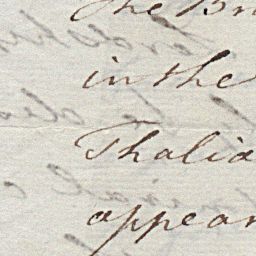 The Br
in the
Thalia
appear